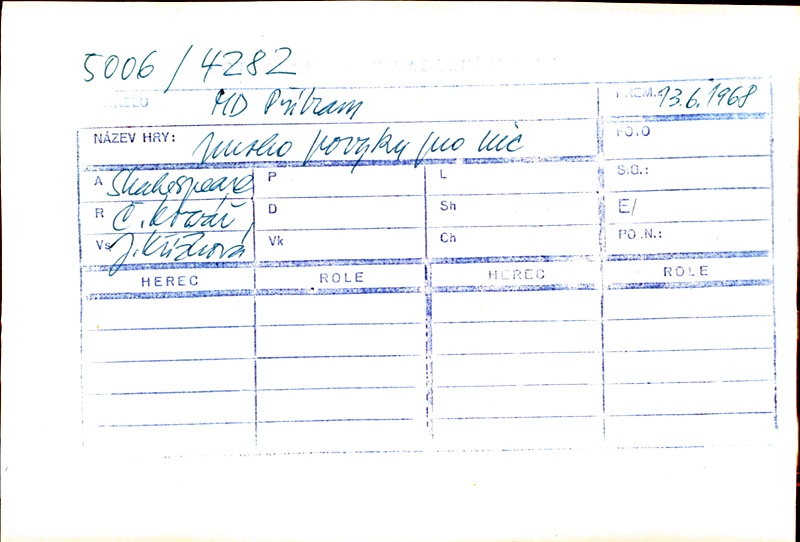 5006 / 4282
MD Příbram PREM. 13.6.1968
NÁZEV HRY: mnoho povyku pro nic PO.O
A Shakespeare P L S.G.:
R Č. Kovář D Sh E/
Vs J. Křížková Vk Ch PO.N.:
HEREC ROLE HEREC ROLE